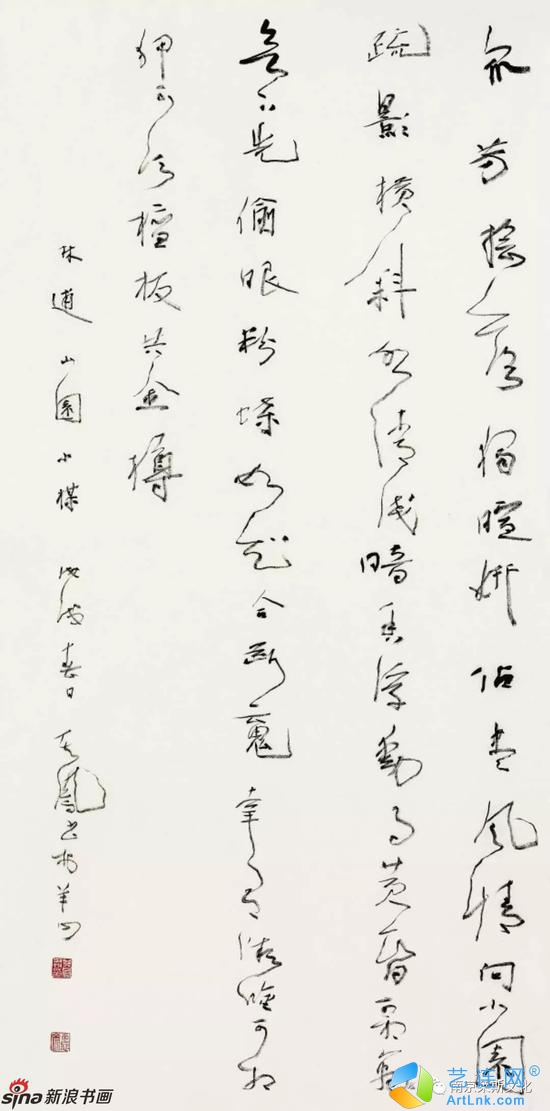 衆芳搖落獨暄妍佔盡風情向小園
疏影橫斜水清淺暗香浮動月黄昏霜禽
欲下先偷眼粉蝶如知合斷魂幸有微吟可相
狎不須檀板共金樽
林逋山園小楳 戊戌春日 鳳书於
sina新浪书画
南京莱斯文化
艺连网
ArtLnk.com